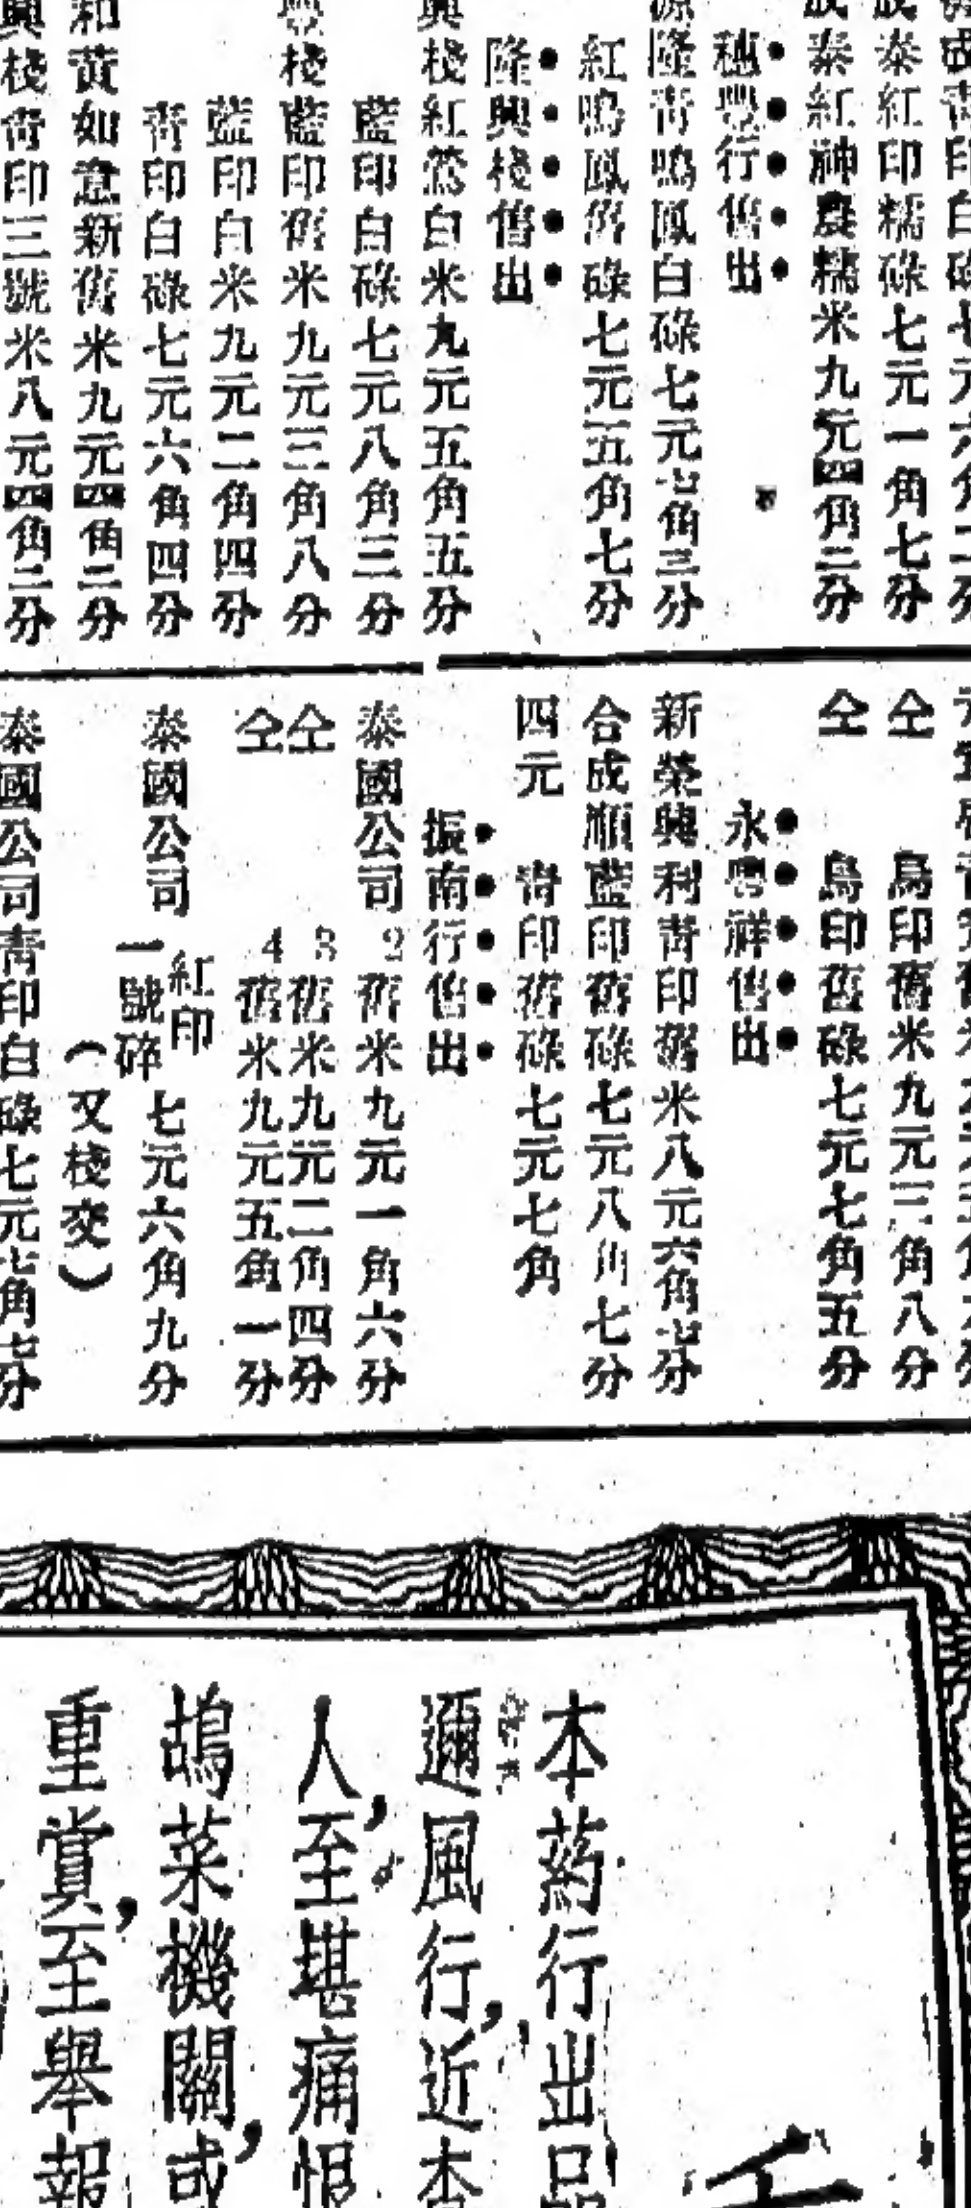 成青印白碌七元六角二分
成泰紅印糯碌七元一角七分
成泰紅神農糯米九元四角二分
穗豐行售出
源隆青鳴鳳白碌七元七角三分
紅鳴鳳舊碌七元五角七分
隆興棧售出
興棧紅鶯白米九元五角五分
藍印白碌七元八角三分
棧藍印舊米九元三角八分
藍印白米九元二角四分
青印白碌七元六角四分
和黃如意新舊米九元四角二分
興棧青印三號米八元四角二分
仝 烏印舊米九元三角八分
仝 烏印舊碌七元七角五分
永粵祥售出
新榮興利青印舊米八元六角七分
合成順藍印舊碌七元八角七分
四元 青印舊碌七元七角
振南行售出
泰國公司 2舊米九元一角六分
仝 3舊米九元二角四分
仝 4舊米九元五角一分
泰國公司 紅印一號碎 七元六角九分
(又棧交)
泰國公司青印白碌七元七角七分
本葯行出品
邇風行，近查
人，至堪痛恨
鴣菜機關，或
重賞，至舉報